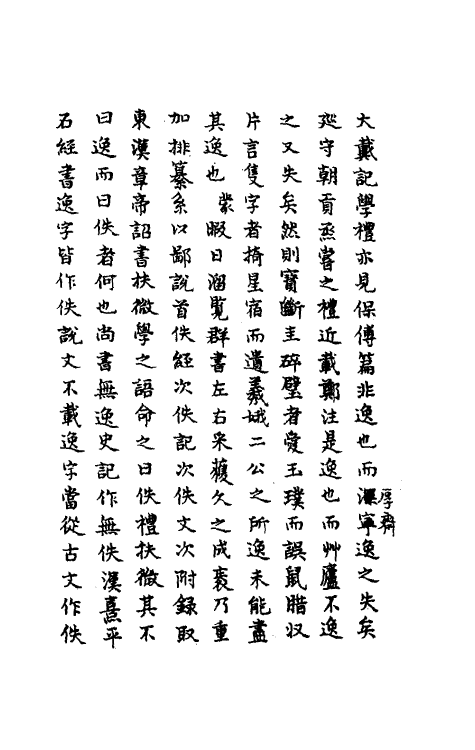 大戴記學禮亦見保傅篇非逸也而深寧逸之失矣
厚齋
廵守朝貢烝嘗之禮近載鄭注是逸也而艸廬不逸
之又失矣然則寶斷圭碎璧者愛玉璞而誤鼠腊収
片言隻字者掎星宿而遺羲娥二公之所逸未能盡
其逸也 蒙暇日溜覽群書左右采獲久之成袠乃重
加排纂系以鄙說首佚經次佚記次佚文次附錄取
東漢章帝詔書扶微學之語命之曰佚禮扶微其不
曰逸而曰佚者何也尚書無逸史記作無佚漢熹平
石經書逸字皆作佚說文不載逸字當從古文作佚